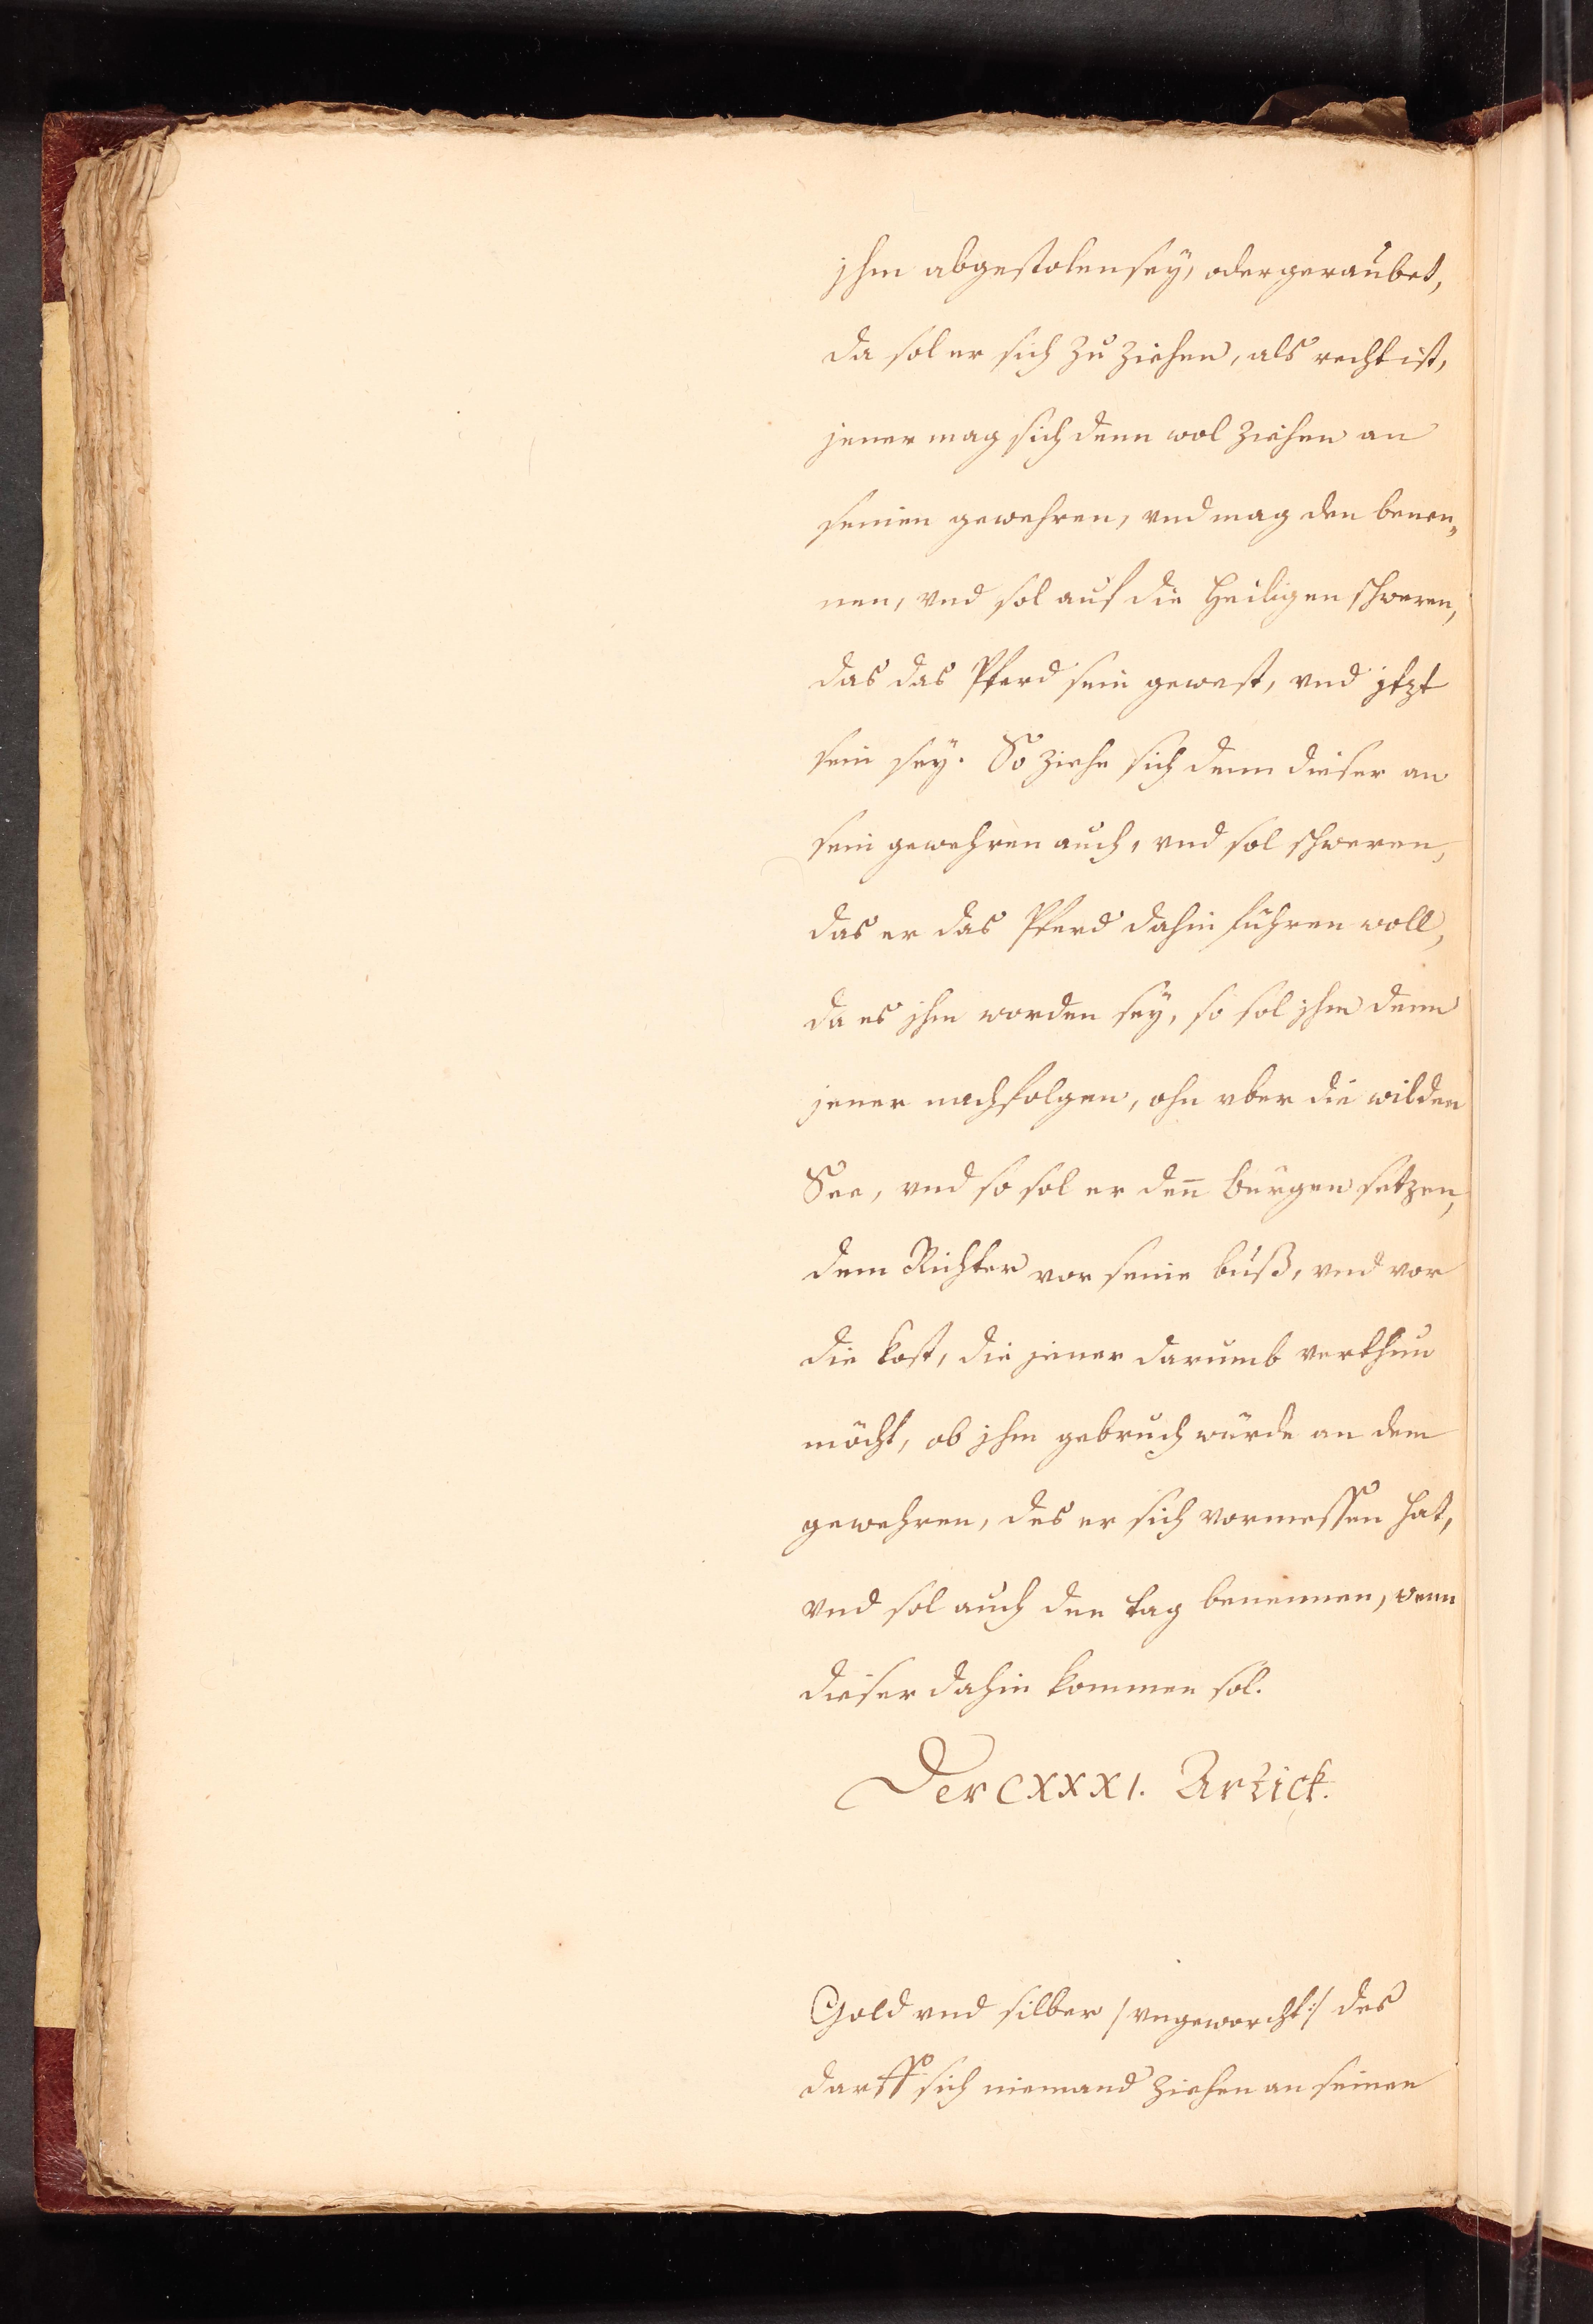 jhm abgestolen sey, oder geraubet,
da sol er sich zu ziehen, als recht ist,
jener mag sich denn wol ziehen an
seinen gewehren, vnd mag den benen„
nen, vnd sol auf die Heiligen schweren,
das das Pferd sein gewest, vnd jtzt
sein sey. So ziehe sich denn dieser an
sein gewehren auch, vnd sol schweren,
das er das Pferd dahin führen woll,
da es jhm worden sey, so sol jhm denn
jener nachfolgen, ohn vber die wilden
See, vnd so sol er den̄ bürgen setzen,
dem Richter vor seine buß, vnd vor
die kost, die jener darumb verthun
möcht, ob jhm gebruch würde an dem
gewehren, des er sich vormessen hat,
vnd sol auch den tag benennen, wenn
dieser dahin kommen sol.
Der CXXXI. Artick.
Gold vnd silber /vngeworcht:/ des
darff sich niemand ziehen an seinen